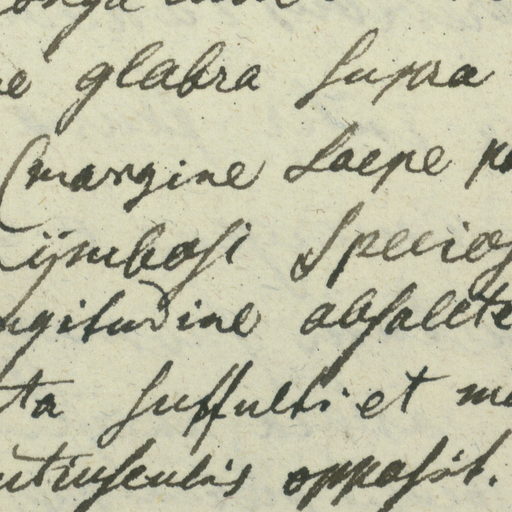 glabra supra
(margine saepe
Cymbosi specios
ngitudine obsolete
ta suffulti et
utriusculis opposit.